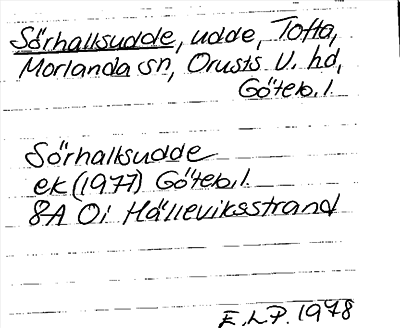 Sörhalksudde, udde, Tofta,
Morlanda sn, Orusts V. hd,
Göteb. l.
Sörhalksudde
ek (1977) Göteb. l.
8A 0i Hälleviksstrand
E.L.P. 1978